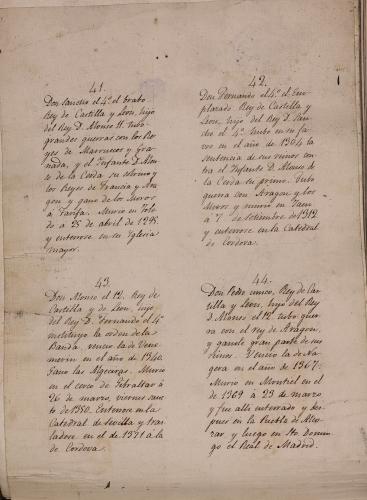 41.
Don Sancho el 4º el brabo
Rey de Castilla y Leon, hijo
del Rey D. Alonso 11. tubo
grandes guerras con los Re
yes de Marruecos y Gra
nada, y el Infante D. Alon
so de la Cerda su sobrino y
los Reyes de Francia y Ara
gon y gano de los Moros
a Tarifa. Murio en Tole
do á 25 de abril de 1295
y enterrose en su Iglesia
mayor.
42.
Don Fernando el 4º el Em
plazado. Rey de Castilla y
Leon, hijo del Rey D. San
cho el 4º. tubo en su fa
vor en el año de 1304 la
sentencia de sus reinos con
tra el Infante D. Alonso de
la Cerda su primo. Tubo
guerra con Aragon y los
Moros y murio en Jaen
á 7 de Setiembre de 1312
y enterrose en la Catedral
de Cordova.
43.
Don Alonso el 12. Rey de
Castilla y de Leon, hijo
del Rey D. Fernando el 4º
instituyo la orden de la
Banda. vencio la de Vene
merin en el año de 1340.
Gano las Algeciras. Murio
en el cerco de Gibraltar á
26 de marzo, viernes san
to de 1350. Enterrose en la
Catedral de Sevilla y tras
ladose en el de 1371 á la
de Cordova.
44.
Don Pedro unico, Rey de Cas
tilla y Leon, hijo del Rey
D. Alonso el 12 tubo guer
ra con el rey de Aragon,
y ganole gran parte de sus
reinos. Vencio la de Na
gera en el año de 1367.
Murio en Montiel en el
de 1369 á 23 de marzo
y fue alli enterrado y des
pues en la Puebla de Alco
zar y luego en Sto. Domin
go el Real de Madrid.